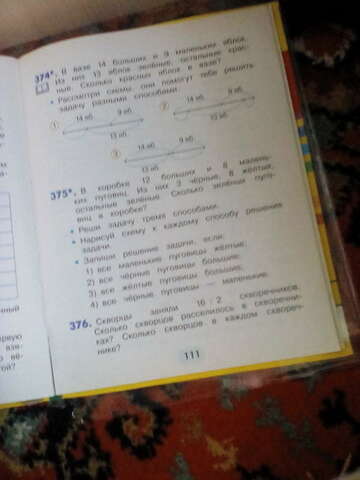 374*. В вазе 14 больших и 9 маленьких яблок.
Из них 13 яблок зелёные, остальные крас-
ные. Сколько красных яблок в вазе?
• Рассмотри схемы, они помогут тебе решить
задачу разными способами.
1 14 яб. 9 яб.
13 яб.
2 14 яб. 9 яб.
13 яб.
3 14 яб. 9 яб.
13 яб.
375*. В коробке 12 больших и 8 малень-
ких пуговиц. Из них 3 чёрные, 8 жёлтых,
остальные зелёные. Сколько зелёных пуго-
виц в коробке?
• Реши задачу тремя способами.
• Нарисуй схему к каждому способу решения
задачи.
• Запиши решение задачи, если:
1) все маленькие пуговицы жёлтые;
2) все чёрные пуговицы большие;
3) все жёлтые пуговицы большие;
4) все чёрные пуговицы — маленькие.
376. Скворцы заняли 16 : 2 скворечников.
Сколько скворцов расселилось в скворечни-
ках? Сколько скворцов в каждом сквореч-
нике?
111